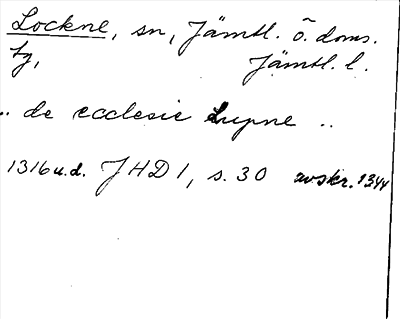 Lockne, sn, Jämtl. ö. doms.
tg, Jämtl. l.
.. de ecclesie Lupne ..
1316 u.d. JHD 1, s. 30 avskr. 1344